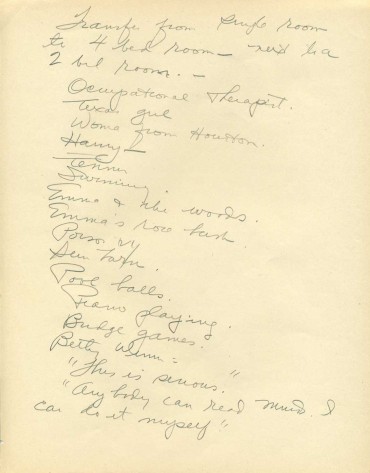 Transfer from single room
to 4 bed room — next to a
2 bed room. —
Occupational Therapist.
Texas girl
Woma from Houston.
Harry —
Tennis
Swimming.
Emma & the woods.
Emma's row
Poison ivy
Sun
Pool balls.
Piano playing.
Bridge games.
Betty Winn:
"This is serious."
"Any body can read minds. I
can do it myself"